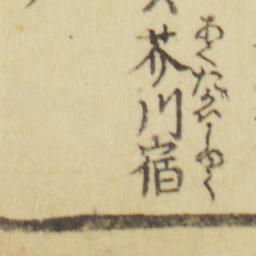 芥川宿
あくたがハしゆく